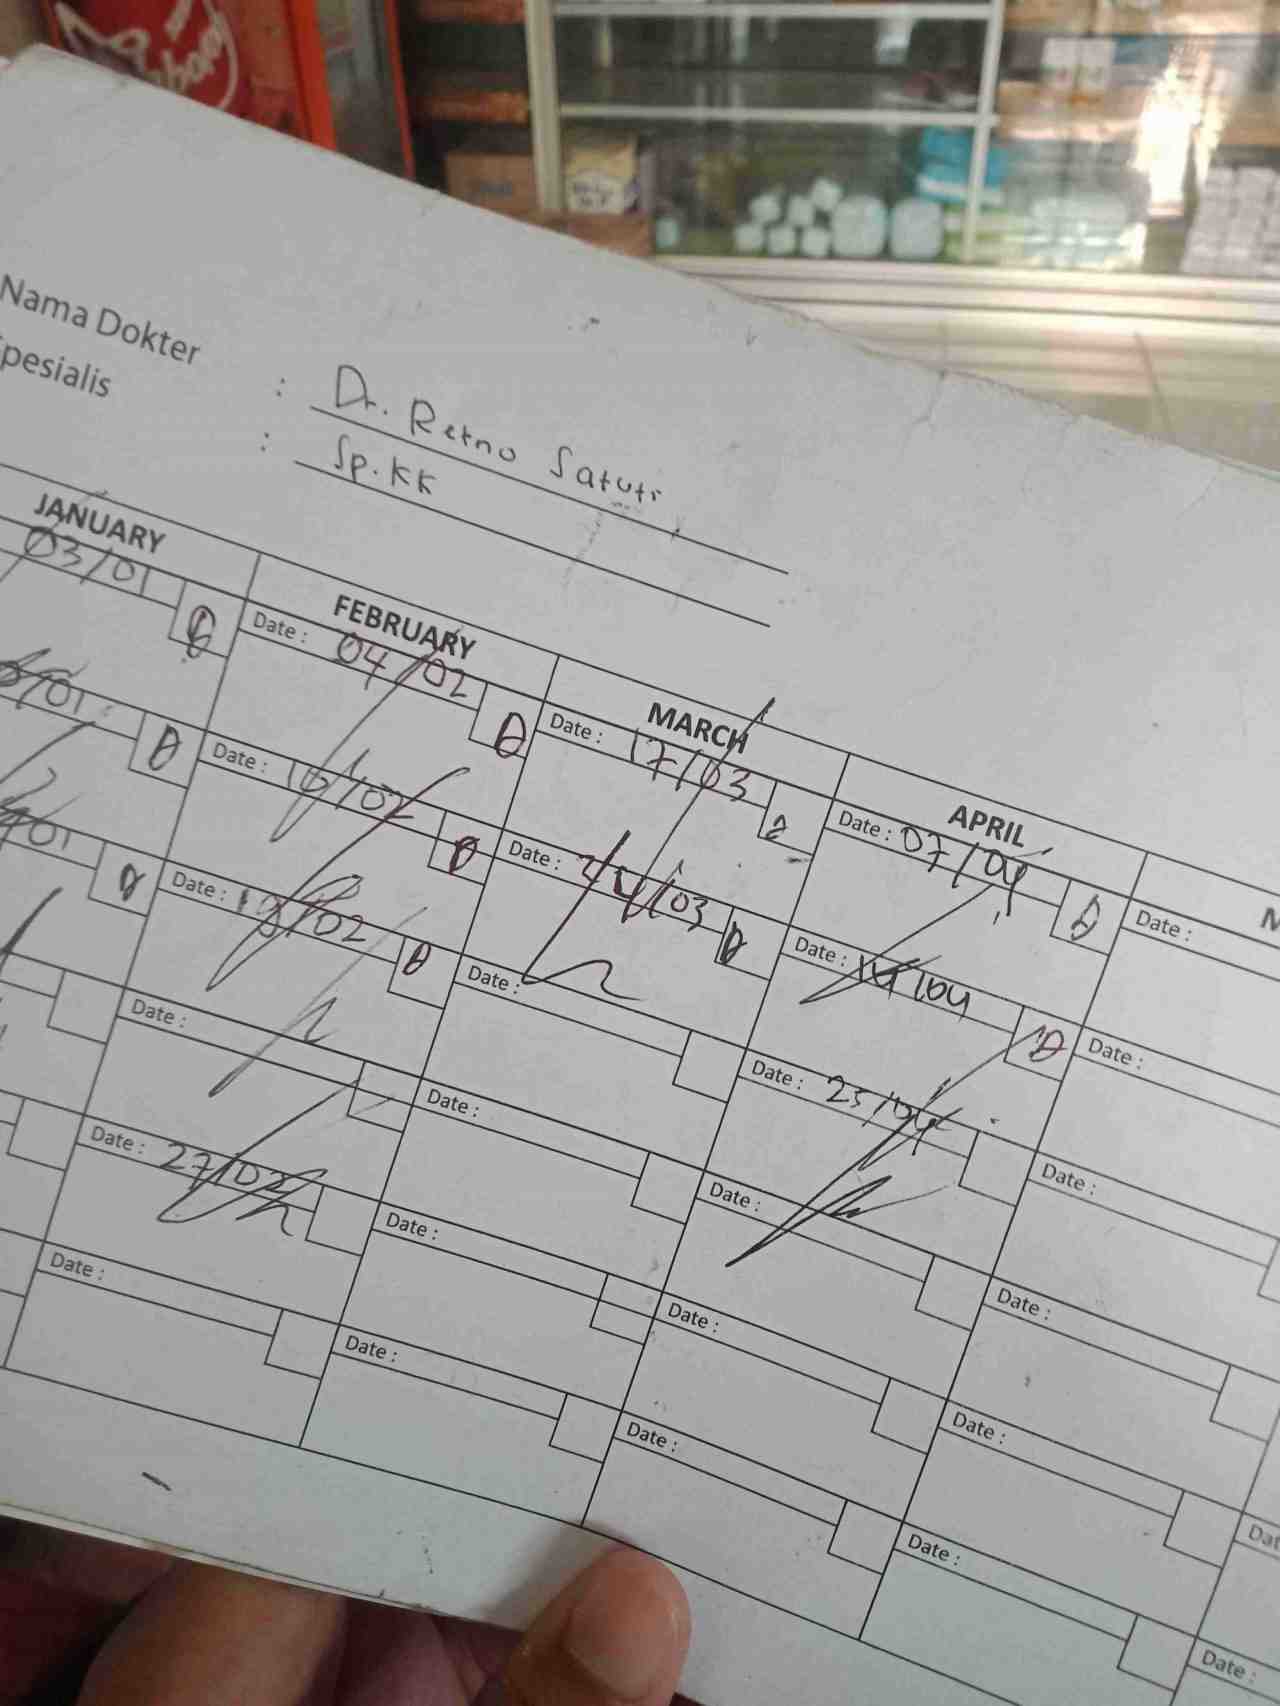 Nama Dokter : Dr. Retno Satuti
pesialis : Sp.KK
JANUARY FEBRUARY MARCH APRIL M
03/01
Date : 04/02
Date : 17/03
Date : 07/04
Date :
/01
Date : 10/02
Date : 24/03
Date : 14/04
Date :
/01
Date : 18/02
Date :
Date : 25/04
Date :
Date :
Date :
Date :
Date :
Date : 27/02
Date :
Date :
Date :
Date :
Date :
Date :
Date :
Date :